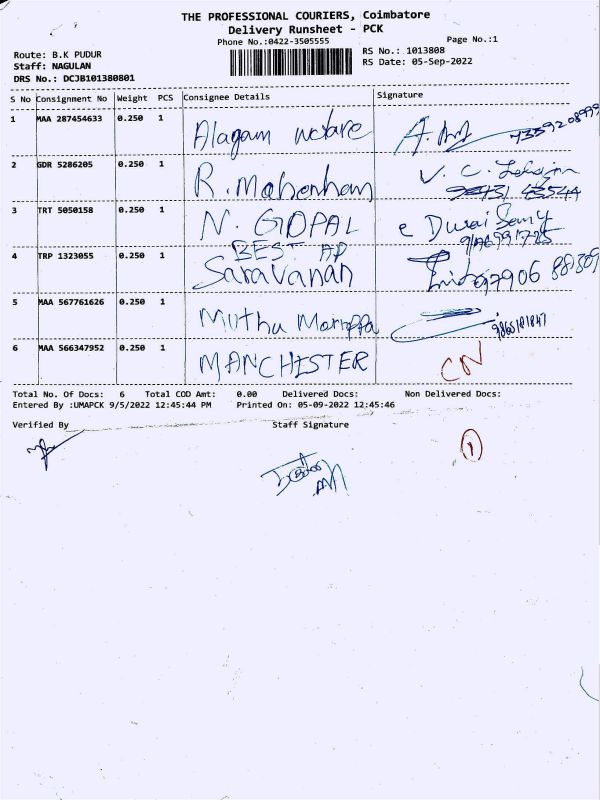 THE PROFESSIONAL COURIERS, Coimbatore
Delivery Runsheet - PCK
Phone No.:0422-3505555
Page No.:1
Route: B.K PUDUR
RS No.: 1013808
Staff: NAGULAN
RS Date: 05-Sep-2022
DRS No.: DCJB101380801
S No Consignment No Weight PCS Consignee Details Signature
1 MAA 287454633 0.250 1 Alagam
2 GDR 5286205 0.250 1 R.
3 TRT 5050158 0.250 1 N. GOPAL
BEST AP
4 TRP 1323055 0.250 1 Saravanan
5 MAA 567761626 0.250 1 Muthu
6 MAA 566347952 0.250 1 MANCHESTER CN
Total No. Of Docs: 6 Total COD Amt: 0.00 Delivered Docs: Non Delivered Docs:
Entered By :UMAPCK 9/5/2022 12:45:44 PM Printed On: 05-09-2022 12:45:46
Verified By Staff Signature
1